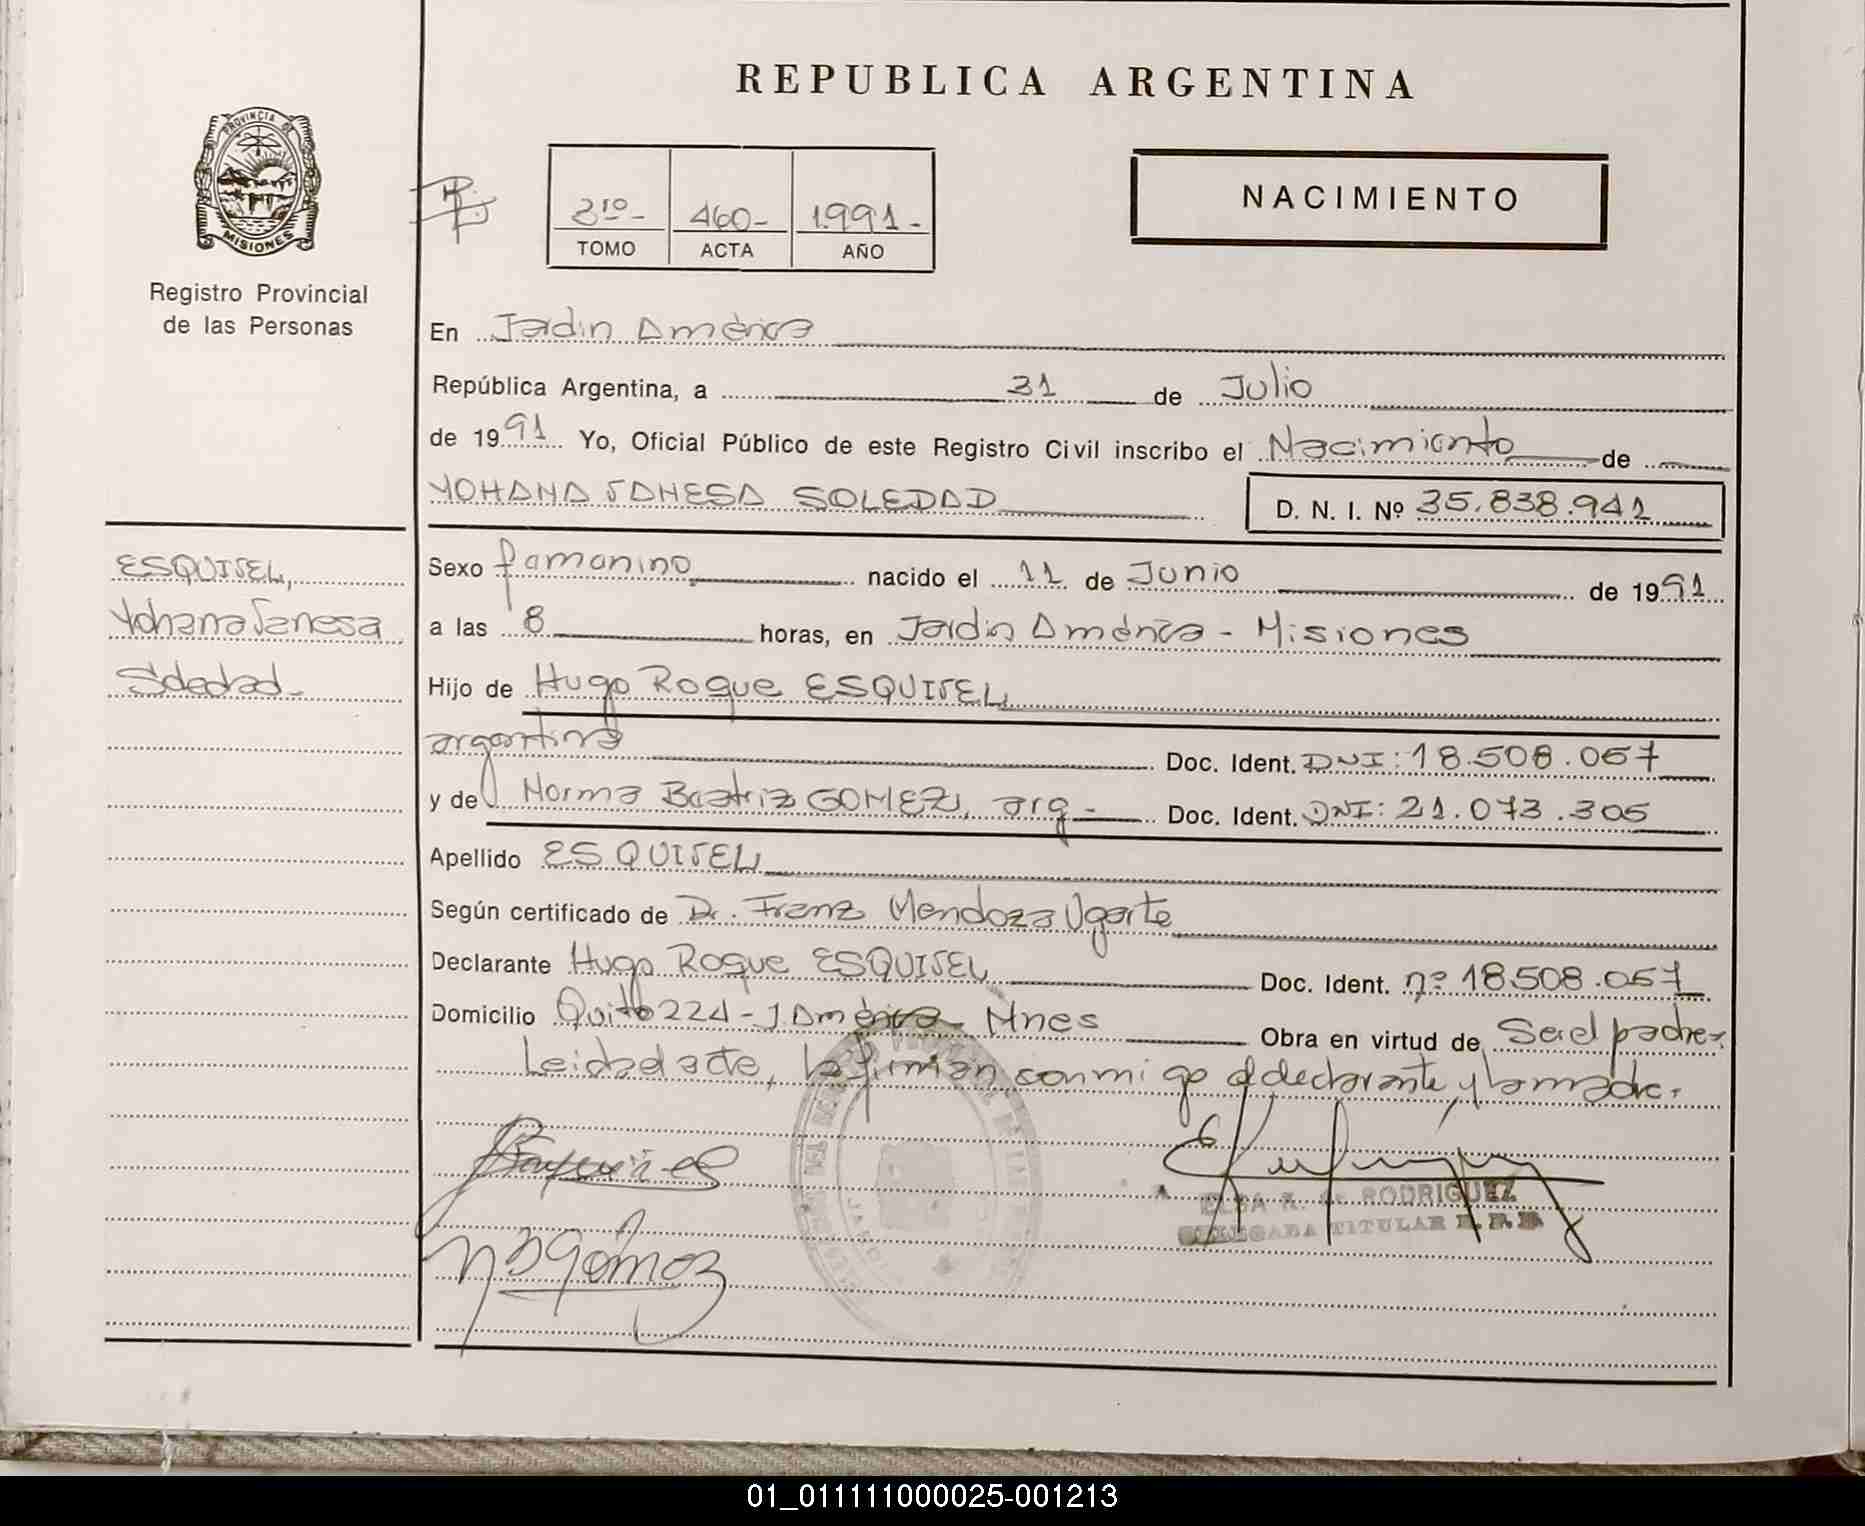 REPUBLICA ARGENTINA
PROVINCIA DE
MISIONES
Registro Provincial
de las Personas
460- 1991-
TOMO ACTA AÑO
NACIMIENTO
En Jardin América
República Argentina, a 31 de Julio
de 1991 Yo, Oficial Público de este Registro Civil inscribo el Nacimiento de
YOHANA VANESA SOLEDAD D. N. I. Nº 35.838.941
ESQUIVEL,
Yohana Vanesa
Soledad-
Sexo femenino nacido el 11 de Junio de 1991
a las 8 horas, en Jardin América - Misiones
Hijo de Hugo Roque ESQUIVEL
argentina Doc. Ident. DNI: 18.508.057
y de Norma Beatriz GOMEZ, arg- Doc. Ident. DNI: 21.073.305
Apellido ESQUIVEL
Según certificado de Dr. Franz Mendoza Ugarte
Declarante Hugo Roque ESQUIVEL Doc. Ident. nº 18508.057
Domicilio Quito 224 - J. América - Mnes Obra en virtud de Ser el padre.
Leida el acta, la firman conmigo el declarante y la madre.
N B Gómez
ELSA R. de RODRIGUEZ
DELEGADA TITULAR R. P. P.
01_011111000025-001213